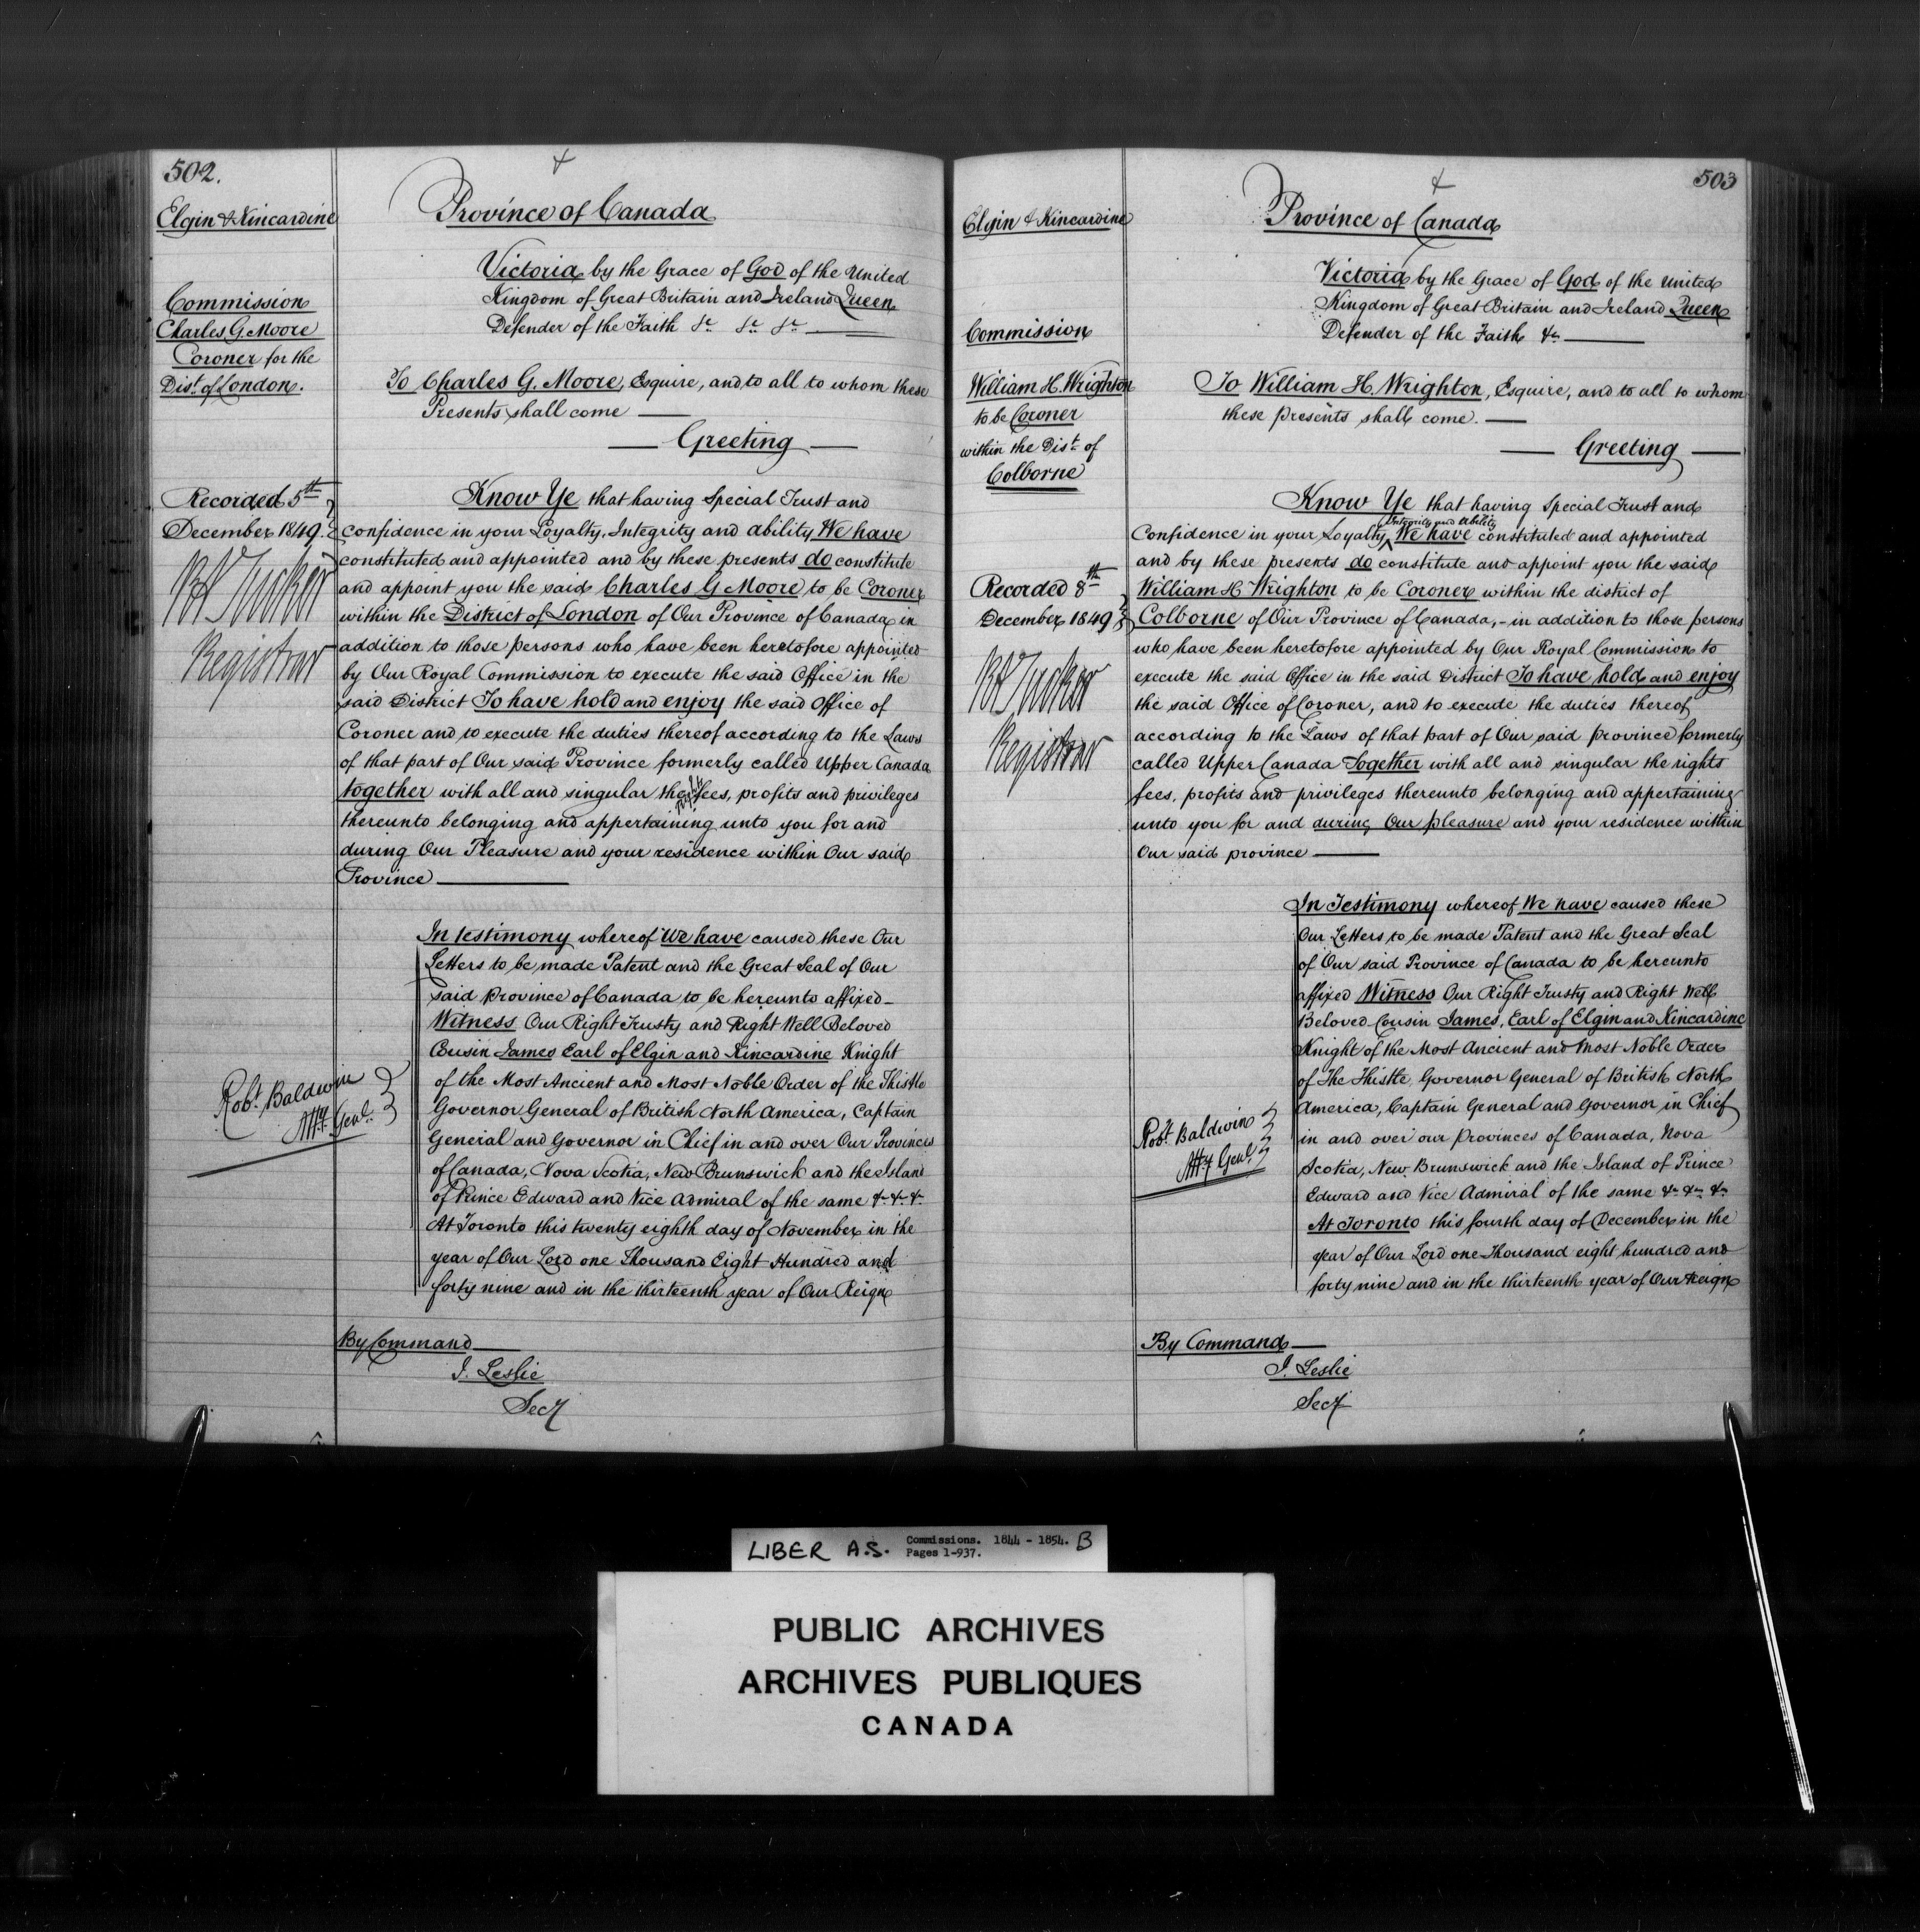 502.
Elgin & Kincardine
Commission
Charles G. Moore
Coroner for the
Dist. of London.
Recorded 5th
December 1849.
R A Tucker
Registrar
Robt. Baldwin
Atty. Genl.
Province of Canada
Victoria by the Grace of God of the United
Kingdom of Great Britain and Ireland Queen
Defender of the Faith &c &c &c
To Charles G. Moore, Esquire, and to all to whom these
Presents shall come
Greeting
Know Ye that having Special Trust and
confidence in your Loyalty, Integrity and ability We have
constituted and appointed and by these presents do constitute
and appoint you the said Charles G Moore to be Coroner
within the District of London of Our Province of Canada in
addition to those persons who have been heretofore appointed
by Our Royal Commission to execute the said Office in the
said District To have hold and enjoy the said Office of
Coroner and to execute the duties thereof according to the Laws
of that part of Our said Province formerly called Upper Canada
together with all and singular the rights fees, profits and privileges
thereunto belonging and appertaining unto you for and
during Our Pleasure and your residence within Our said
Province
In testimony whereof We have caused these Our
Letters to be made Patent and the Great Seal of Our
said Province of Canada to be hereunto affixed-
Witness Our Right Trusty and Right Well Beloved
Cousin James Earl of Elgin and Kincardine Knight
of the Most Ancient and Most Noble Order of the Thistle
Governor General of British North America, Captain
General and Governor in Chief in and over Our Provinces
of Canada, Nova Scotia, New Brunswick and the Island
of Prince Edward and Vice Admiral of the same &c &c &c
At Toronto this twenty eighth day of November in the
year of Our Lord one Thousand Eight Hundred and
forty nine and in the thirteenth year of Our Reign
By Command
J. Leslie
Secy
503
Elgin & Kincardine
Commission
William H. Wrighton
to be Coroner
within the Dist. of
Colborne
Recorded 8th
December 1849
R A Tucker
Registrar
Robt. Baldwin
Atty Genl.
Province of Canada
Victoria by the Grace of God of the United
Kingdom of Great Britain and Ireland Queen
Defender of the Faith &c
To William H. Wrighton, Esquire, and to all to whom
these presents shall come.
Greeting
Know Ye that having Special Trust and
Confidence in your Loyalty, Integrity and Ability We have constituted and appointed
and by these presents do constitute and appoint you the said
William H Wrighton to be Coroner within the district of
Colborne of Our Province of Canada,- in addition to those persons
who have been heretofore appointed by Our Royal Commission to
execute the said Office in the said District To have hold and enjoy
the said Office of Coroner, and to execute the duties thereof
according to the Laws of that part of Our said province formerly
called Upper Canada Together with all and singular the rights
fees, profits and privileges thereunto belonging and appertaining
unto you for and during Our pleasure and your residence within
Our said province
In Testimony whereof We have caused these
Our Letters to be made Patent and the Great Seal
of Our said Province of Canada to be hereunto
affixed Witness Our Right Trusty and Right Well
Beloved Cousin James, Earl of Elgin and Kincardine
Knight of the Most Ancient and Most Noble Order
of The Thistle, Governor General of British North
America, Captain General and Governor in Chief
in and over our Provinces of Canada, Nova
Scotia, New Brunswick and the Island of Prince
Edward and Vice Admiral of the same &c &c &c
At Toronto this fourth day of December in the
year of Our Lord one Thousand eight hundred and
forty nine and in the thirteenth year of Our Reign
By Command
J. Leslie
Secy
LIBER A.S. Commissions. 1844 - 1854. B
Pages 1-937.
PUBLIC ARCHIVES
ARCHIVES PUBLIQUES
CANADA